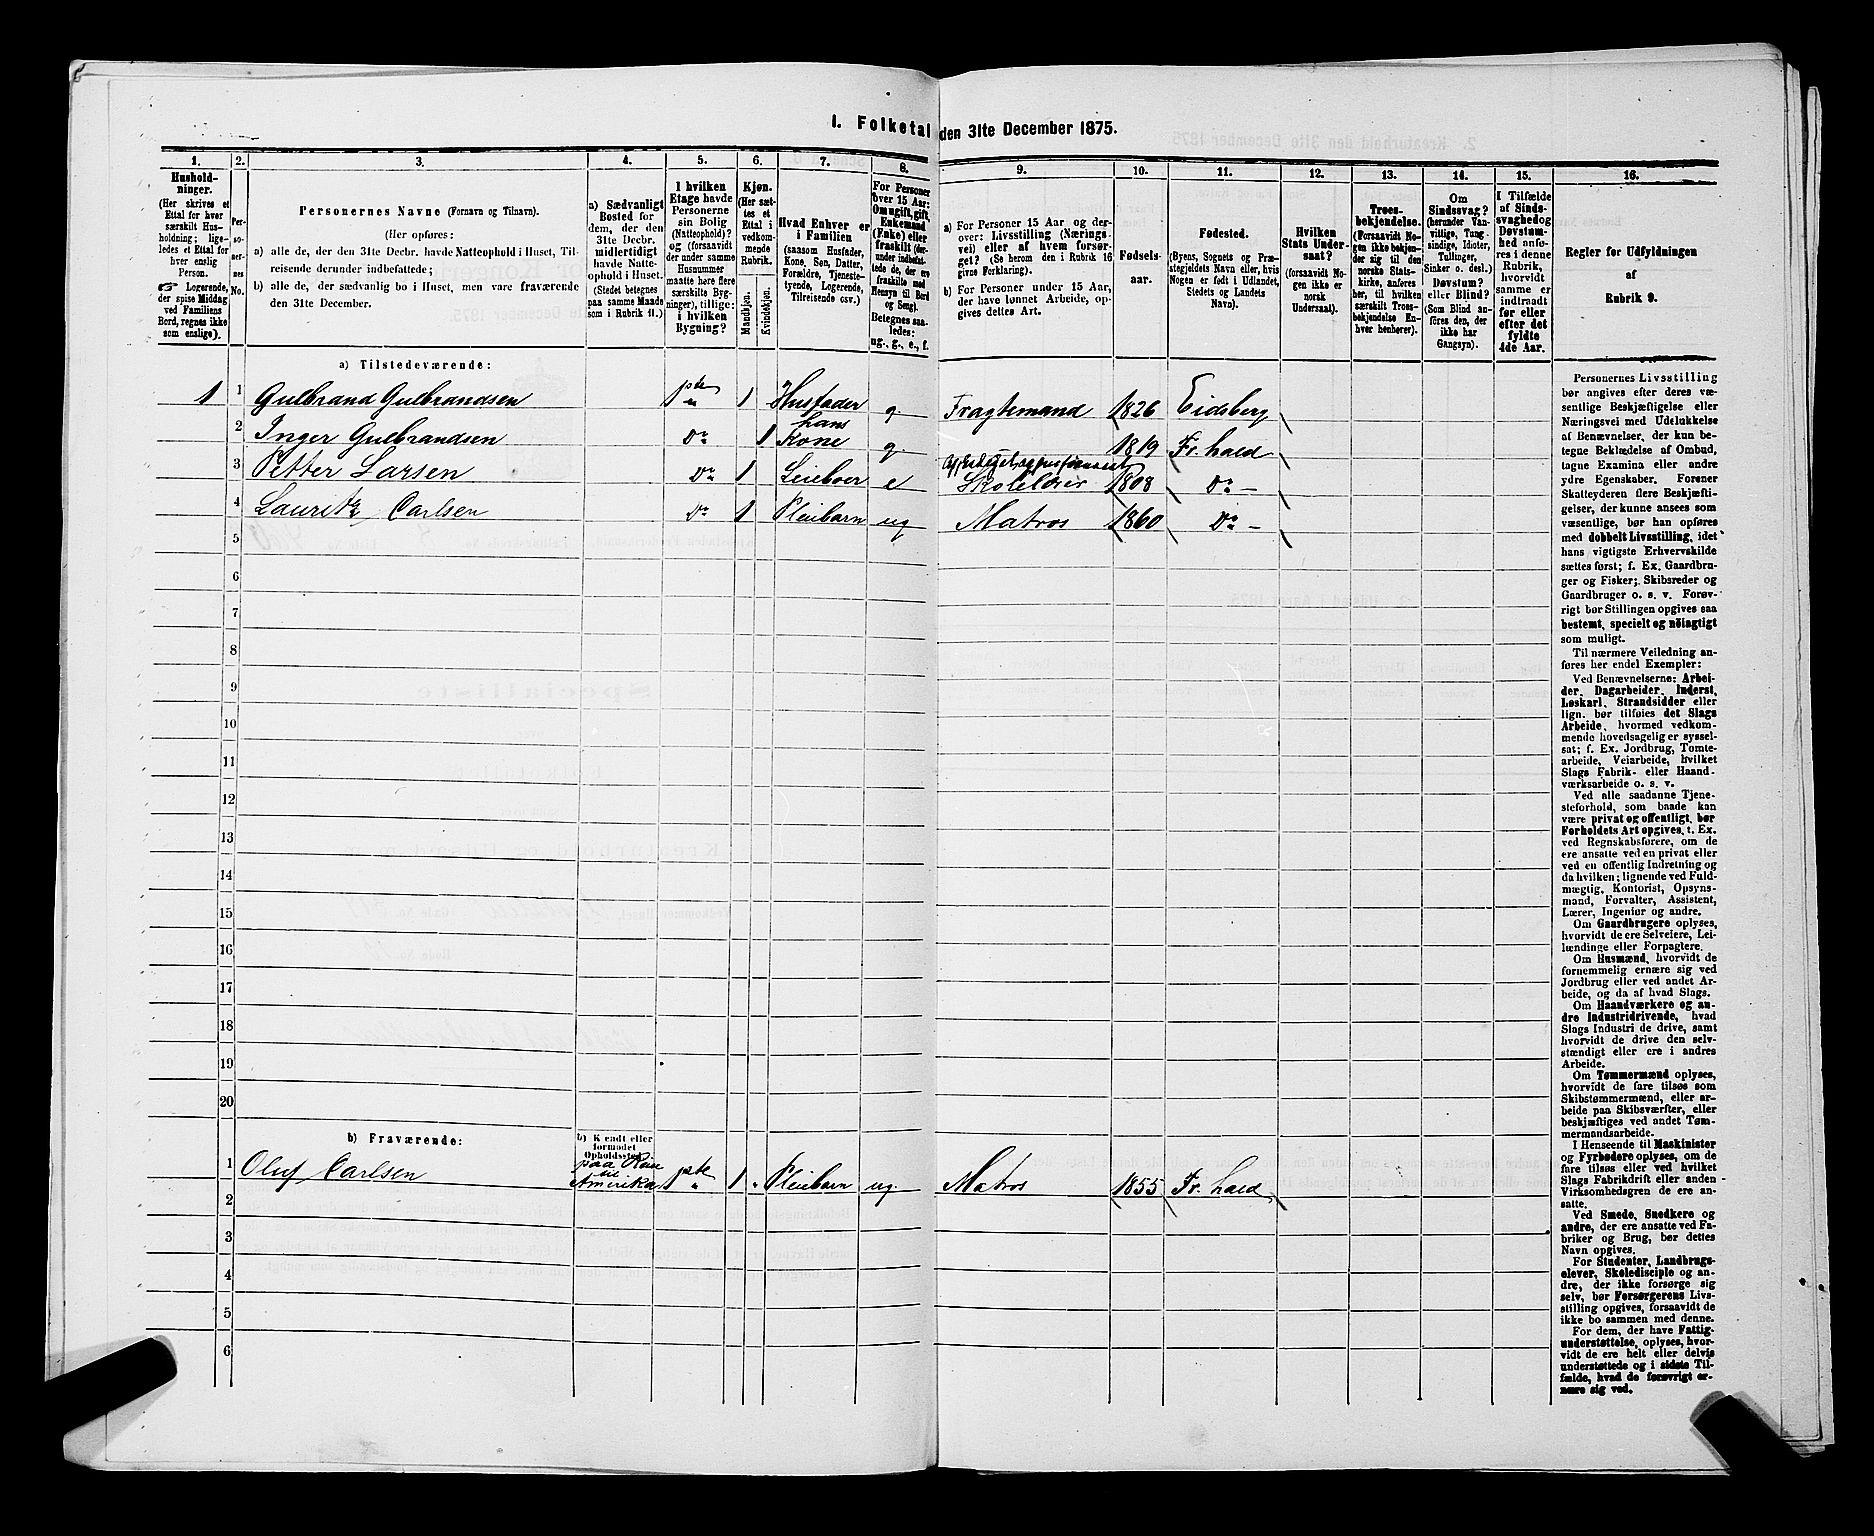 1. Folketal den 31te December 1875.
1. 2. 3. 4. 5. 6. 7. 8. 9. 10. 11. 12. 13. 14. 15. 16.
Hushold-
ninger.
(Her skrives et
Ettal for hver
særskilt Hus-
holdning; lige-
ledes et Ettal for
hver enslig
Person.
☞ Logerende,
der spise Middag
ved Familiens
Bord, regnes ikke
som enslige).
Per-
so-
ner-
nes
No.
Personernes Navne (Fornavn og Tilnavn).
(Her opføres:
a) alle de, der den 31te Decbr. havde Natteophold i Huset, Til-
reisende derunder indbefattede;
b) alle de, der sædvanlig bo i Huset, men vare fraværende
den 31te December.
a) Sædvanligt
Bosted for
dem, der den
31te Decbr.
midlertidigt
havde Natte-
ophold i Huset.
(Stedet betegnes
paa samme Maade
som i Rubrik 11.)
I hvilken
Etage havde
Personerne
sin Bolig
(Natteophold)?
og (forsaavidt
der under samme
Husnummer
maatte høre flere
særskilte Byg-
ninger), tillige:
i hvilken
Bygning?
Kjøn.
(Her sæt-
tes et
Ettal i
vedkom-
mende
Rubrik.
Mandkjøn.
Kvindekjøn.
Hvad Enhver er
i Familien
(saasom Husfader,
Kone, Søn, Datter,
Forældre, Tjeneste-
tyende, Logerende,
Tilreisende osv.)
For Personer
over 15 Aar:
Om ugift, gift,
Enkemand
(Enke) eller
fraskilt (der-
under indbefat-
tede de, der ere
fraskilte med
Hensyn til Bord
og Seng).
Betegnes saa-
ledes:
ug., g., e., f.
a) For Personer 15 Aar og der-
over: Livsstilling (Nærings-
vei) eller af hvem forsør-
get? (Se herom den i Rubrik 16
givne Forklaring).
b) For Personer under 15 Aar,
der have lønnet Arbeide, op-
gives dettes Art.
Fødsels-
aar.
Fødested.
(Byens, Sognets og Præ-
stegjeldets Navn eller, hvis
Nogen er født i Udlandet,
Stedets og Landets
Navn).
Hvilken
Stats Under-
saat?
(forsaavidt No-
gen ikke er
norsk
Undersaat).
Troes-
bekjendelse.
(Forsaavidt No-
gen ikke bekjen-
der sig til den
norske Stats-
kirke, anføres
her, til hvilken
særskilt Troes-
bekjendelse En-
hver henhører).
Om
Sindssvag?
(herunder Van-
vittige, Tung-
sindige, Idioter,
Tullinger,
Sinker o. desl.)
Døvstum?
eller Blind?
(Som Blind an-
føres den, der
ikke har
Gangsyn).
I Tilfælde
af Sinds-
svaghed og
Døvstum-
hed anfø-
res i denne
Rubrik,
hvorvidt
samme er
indtraadt
før eller
efter det
fyldte
4de Aar.
Regler for Udfyldningen
af
Rubrik 9.
a) Tilstedeværende:
1 1 Gulbrand Gulbrandsen 1 Husfader g Fragtemand 1826 Eidsberg
2 Inger Gulbrandsen Do 1 hans Kone g. 1819 Fr. hald
3 Petter Larsen Do 1 Leieboer e Skolelærer 1808 Do
4 Lauritz Carlsen Do 1 Pleiebarn ug Matros 1860 Do
5
6
7
8
9
10
11
12
13
14
15
16
17
18
19
20
b) Fraværende:
b) Kjendt eller
formodet
Opholdssted
1 Oluf Carlsen paa Reise til Amerika 1 Pleiebarn ug. Matros 1855 Fr. hald
2
3
4
5
6
Personernes Livsstilling
bør angives efter deres væ-
sentlige Beskjæftigelse eller
Næringsvei med Udelukkelse
af Benævnelser, der kun be-
tegne Beklædelse af Ombud,
tagne Examina eller andre
ydre Egenskaber. Forener
Skatteyderen flere Beskjæfti-
gelser, der kunne ansees som
væsentlige, bør han opføres
med dobbelt Livsstilling, idet
hans vigtigste Erhvervskilde
sættes først; f. Ex. Gaardbru-
ger og Fisker; Skibsreder og
Gaardbruger o. s. v. Forøv-
rigt bør Stillingen opgives saa
bestemt, specielt og nöiagtigt
som muligt.
Til nærmere Veiledning an-
føres her endel Exempler:
Ved Benævnelserne: Arbei-
der, Dagarbeider, Inderst,
Løskarl, Strandsidder eller
lign. bør tilføies det Slags
Arbeide, hvormed vedkom-
mende hovedsagelig er syssel-
sat; f. Ex. Jordbrug, Tomte-
arbeide, Veiarbeide, hvilket
Slags Fabrik- eller Haand-
værksarbeide o. s. v.
Ved alle saadanne Tjene-
steforhold, som baade kan
være privat og offentligt, bør
Forholdets Art opgives, t. Ex.
ved Regnskabsførere, om de
ere ansatte ved en privat eller
ved en offentlig Indretning og
da hvilken; lignende ved Fuld-
mægtig, Kontorist, Opsyns-
mand, Forvalter, Assistent,
Lærer, Ingeniør og andre.
Om Gaardbrugere oplyses,
hvorvidt de ere Selveiere, Lei-
lændinge eller Forpagtere.
Om Husmænd, hvorvidt de
fornemmelig ernære sig ved
Jordbrug eller ved andet Ar-
beide, og da af hvad Slags.
Om Haandværkere og an-
dre Industridrivende, hvad
Slags Industri de drive, samt
hvorvidt de drive den selv-
stændigt eller ere i andres
Arbeide.
Om Tømmermænd oplyses,
hvorvidt de fare tilsøs som
Skibstømmermænd, eller ar-
beide paa Skibsværfter, eller
beskjæftiges ved andet Tøm-
mermandsarbeide.
I Henseende til Maskinister
og Fyrbødere oplyses, om de
fare tilsøs eller ved hvilket
Slags Fabrikdrift eller anden
Virksomhedsgren de ere an-
satte.
Ved Smede, Snedkere og
andre, der ere ansatte ved Fa-
briker og Brug, bør dettes
Navn opgives.
For Studenter, Landbrugs-
elever, Skoledisciple og an-
dre, der ikke forsørge sig
selv, bør Forsørgerens Livs-
stilling opgives, forsaavidt de
ikke bo sammen med denne.
For dem, der have Fattig-
understøttelse, oplyses, hvor-
vidt de ere helt eller delvis
understøttede og i sidste Til-
fælde, hvad de forøvrigt er-
nære sig ved.